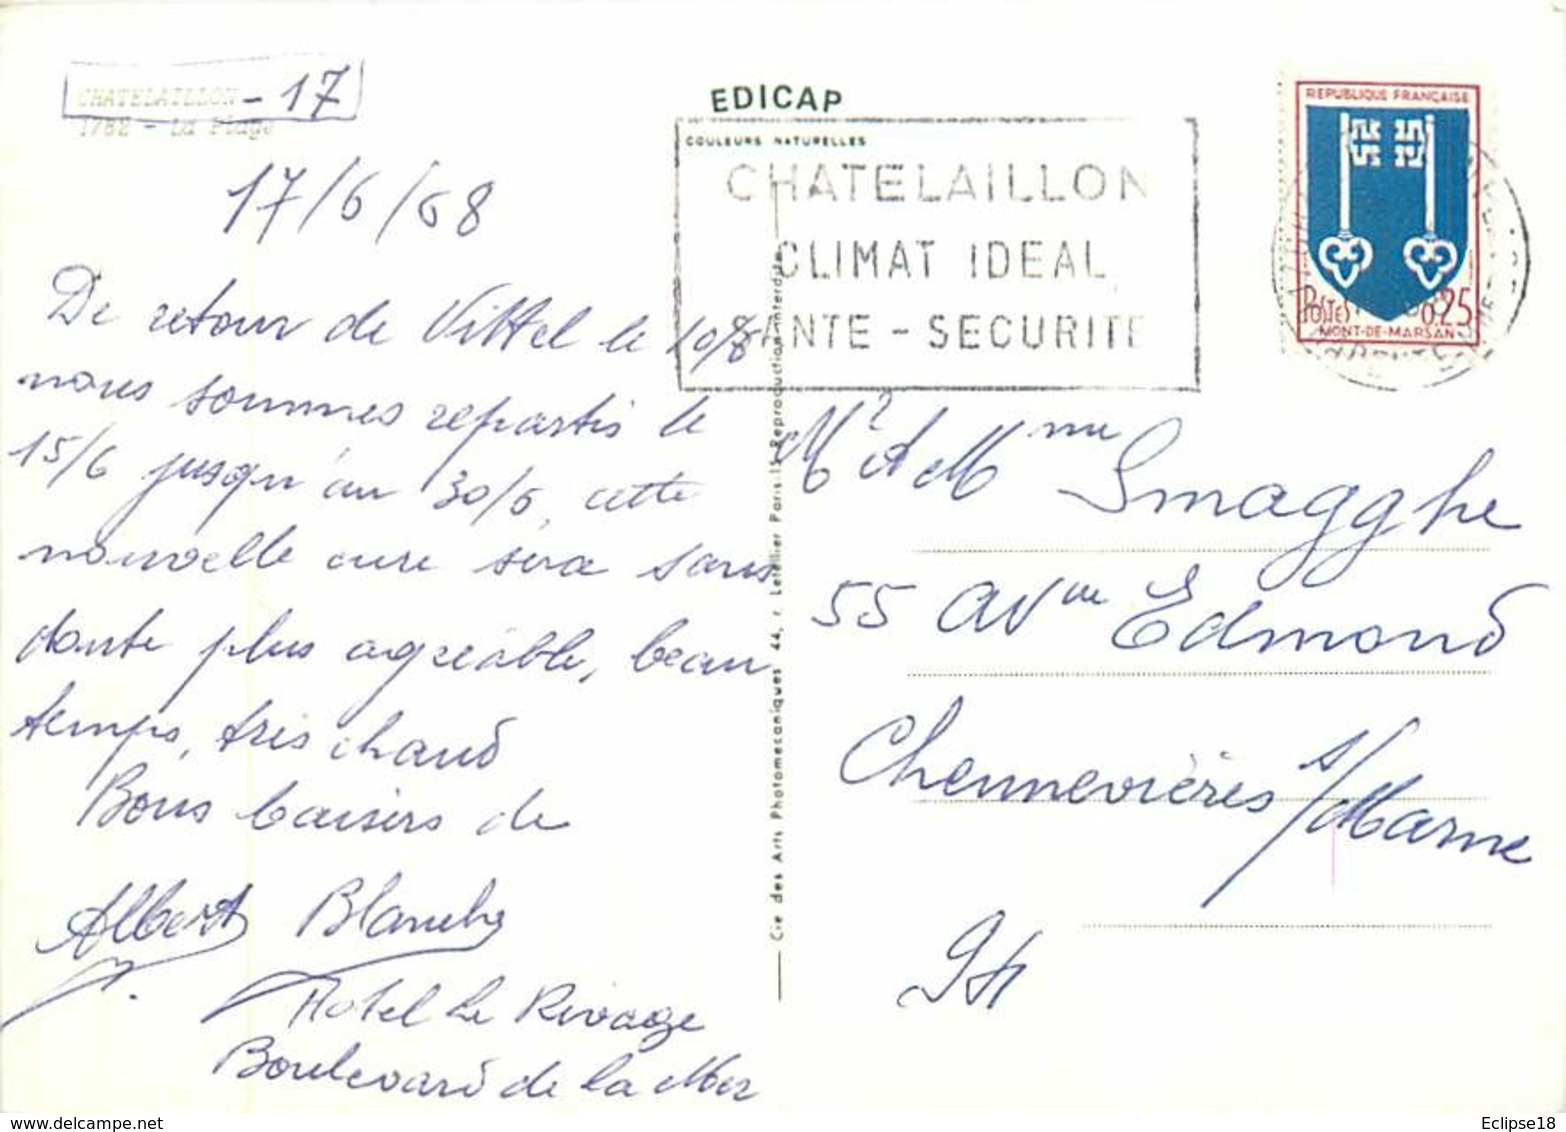 CHATELAILLON - 17
1782 - La Plage
17/6/68
De retour de Vittel le 10/6
nous sommes repartis le
15/6 jusqu'au 30/6, cette
nouvelle cure sera sans
doute plus agréable, beau
temps, très chaud
Bons baisers de
Albert Blanche
Hotel Le Rivage
Boulevard de la Mer
EDICAP
COULEURS NATURELLES
CHATELAILLON
CLIMAT IDEAL
SANTE - SECURITE
Cie des Arts Photomecaniques 44, r. Letellier Paris-15 Reproduction interdite
REPUBLIQUE FRANÇAISE
POSTES 0,25
MONT-DE-MARSAN
Mr et Mme Smagghe
55 avue Edmond
Chennevières s/Marne
94
Eclipse18